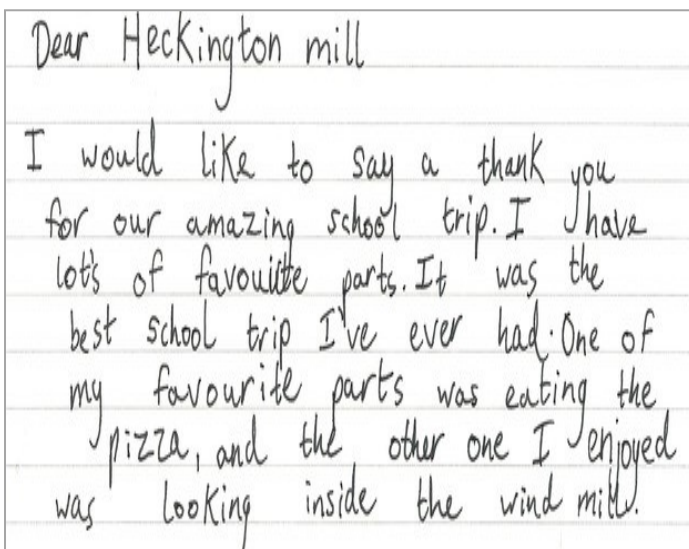 Dear Heckington mill
I would like to say a thank you
for our amazing school trip. I have
lot's of favouiite parts. It was the
best school trip I've ever had. One of
my favourite parts was eating the
pizza, and the other one I enjoyed
was looking inside the wind mill.